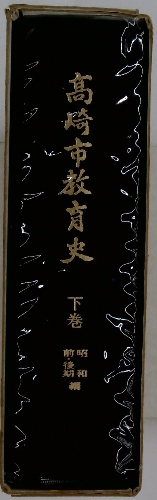 高崎市教育史
下巻
昭和
前・後期編